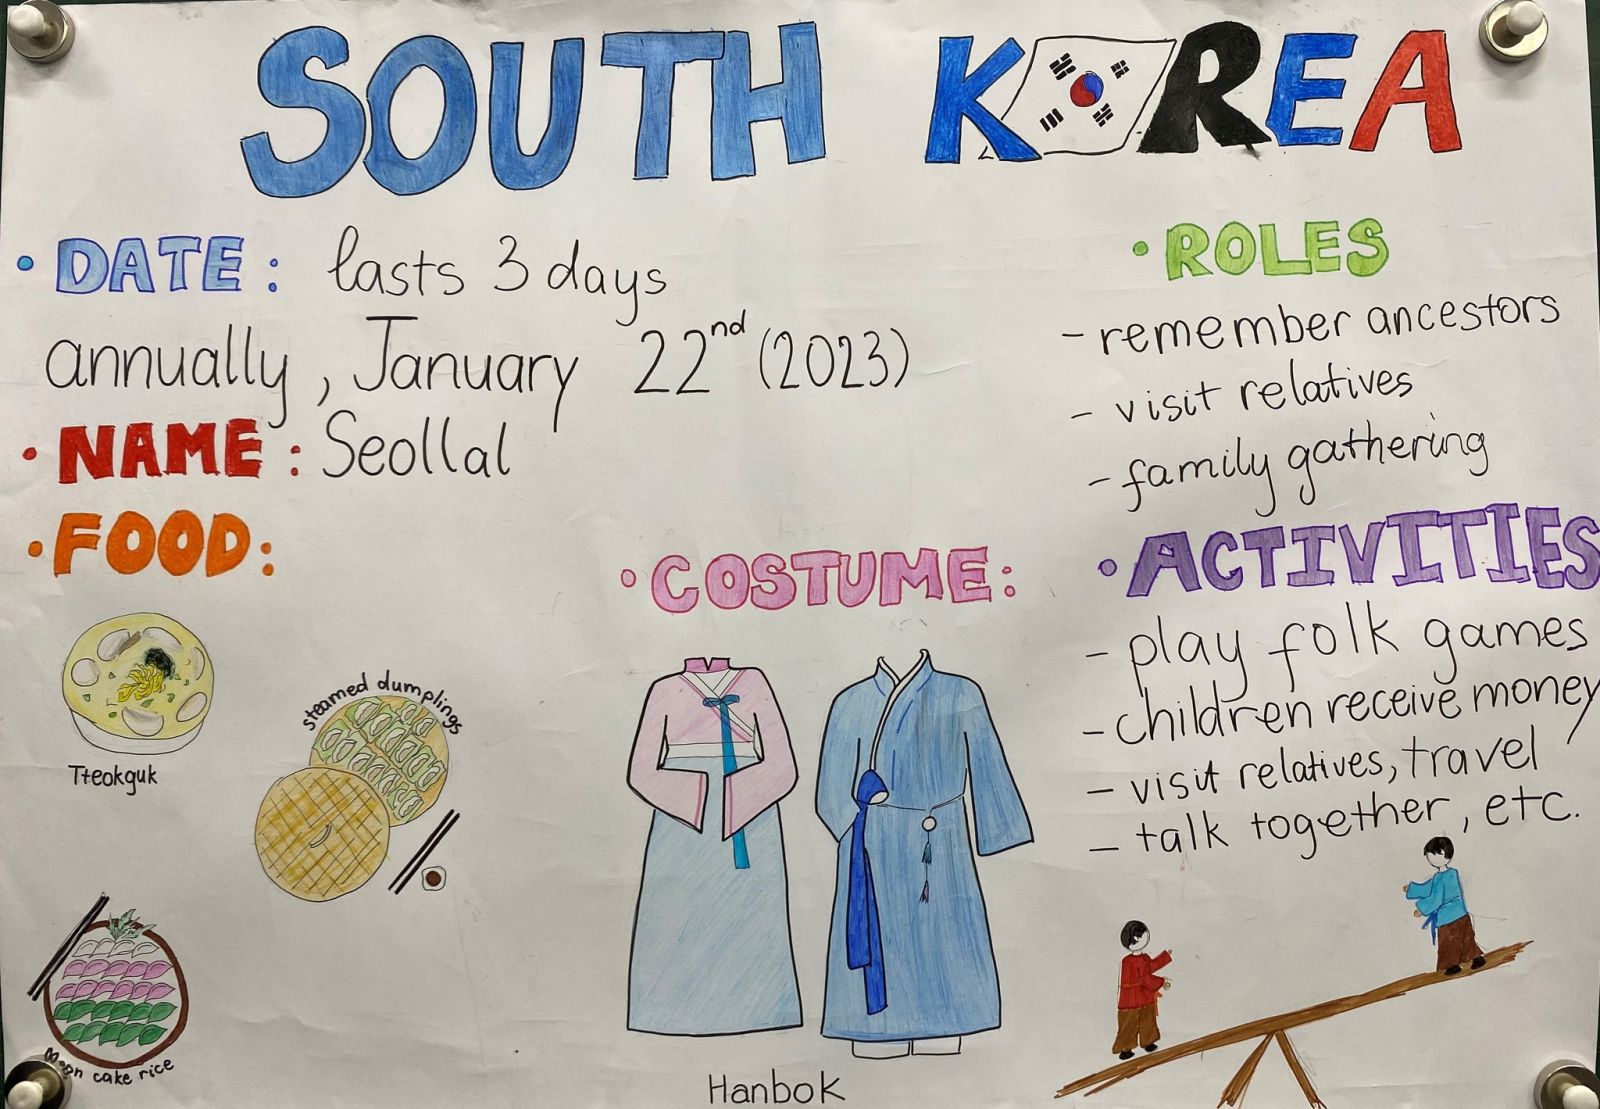 SOUTH KOREA
• DATE: lasts 3 days
annually, January 22nd (2023)
• NAME: Seollal
• FOOD:
Tteokguk
steamed dumplings
Moon cake rice
• COSTUME:
Hanbok
• ROLES
- remember ancestors
- visit relatives
- family gathering
• ACTIVITIES
- play folk games
- children receive money
- visit relatives, travel
- talk together, etc.